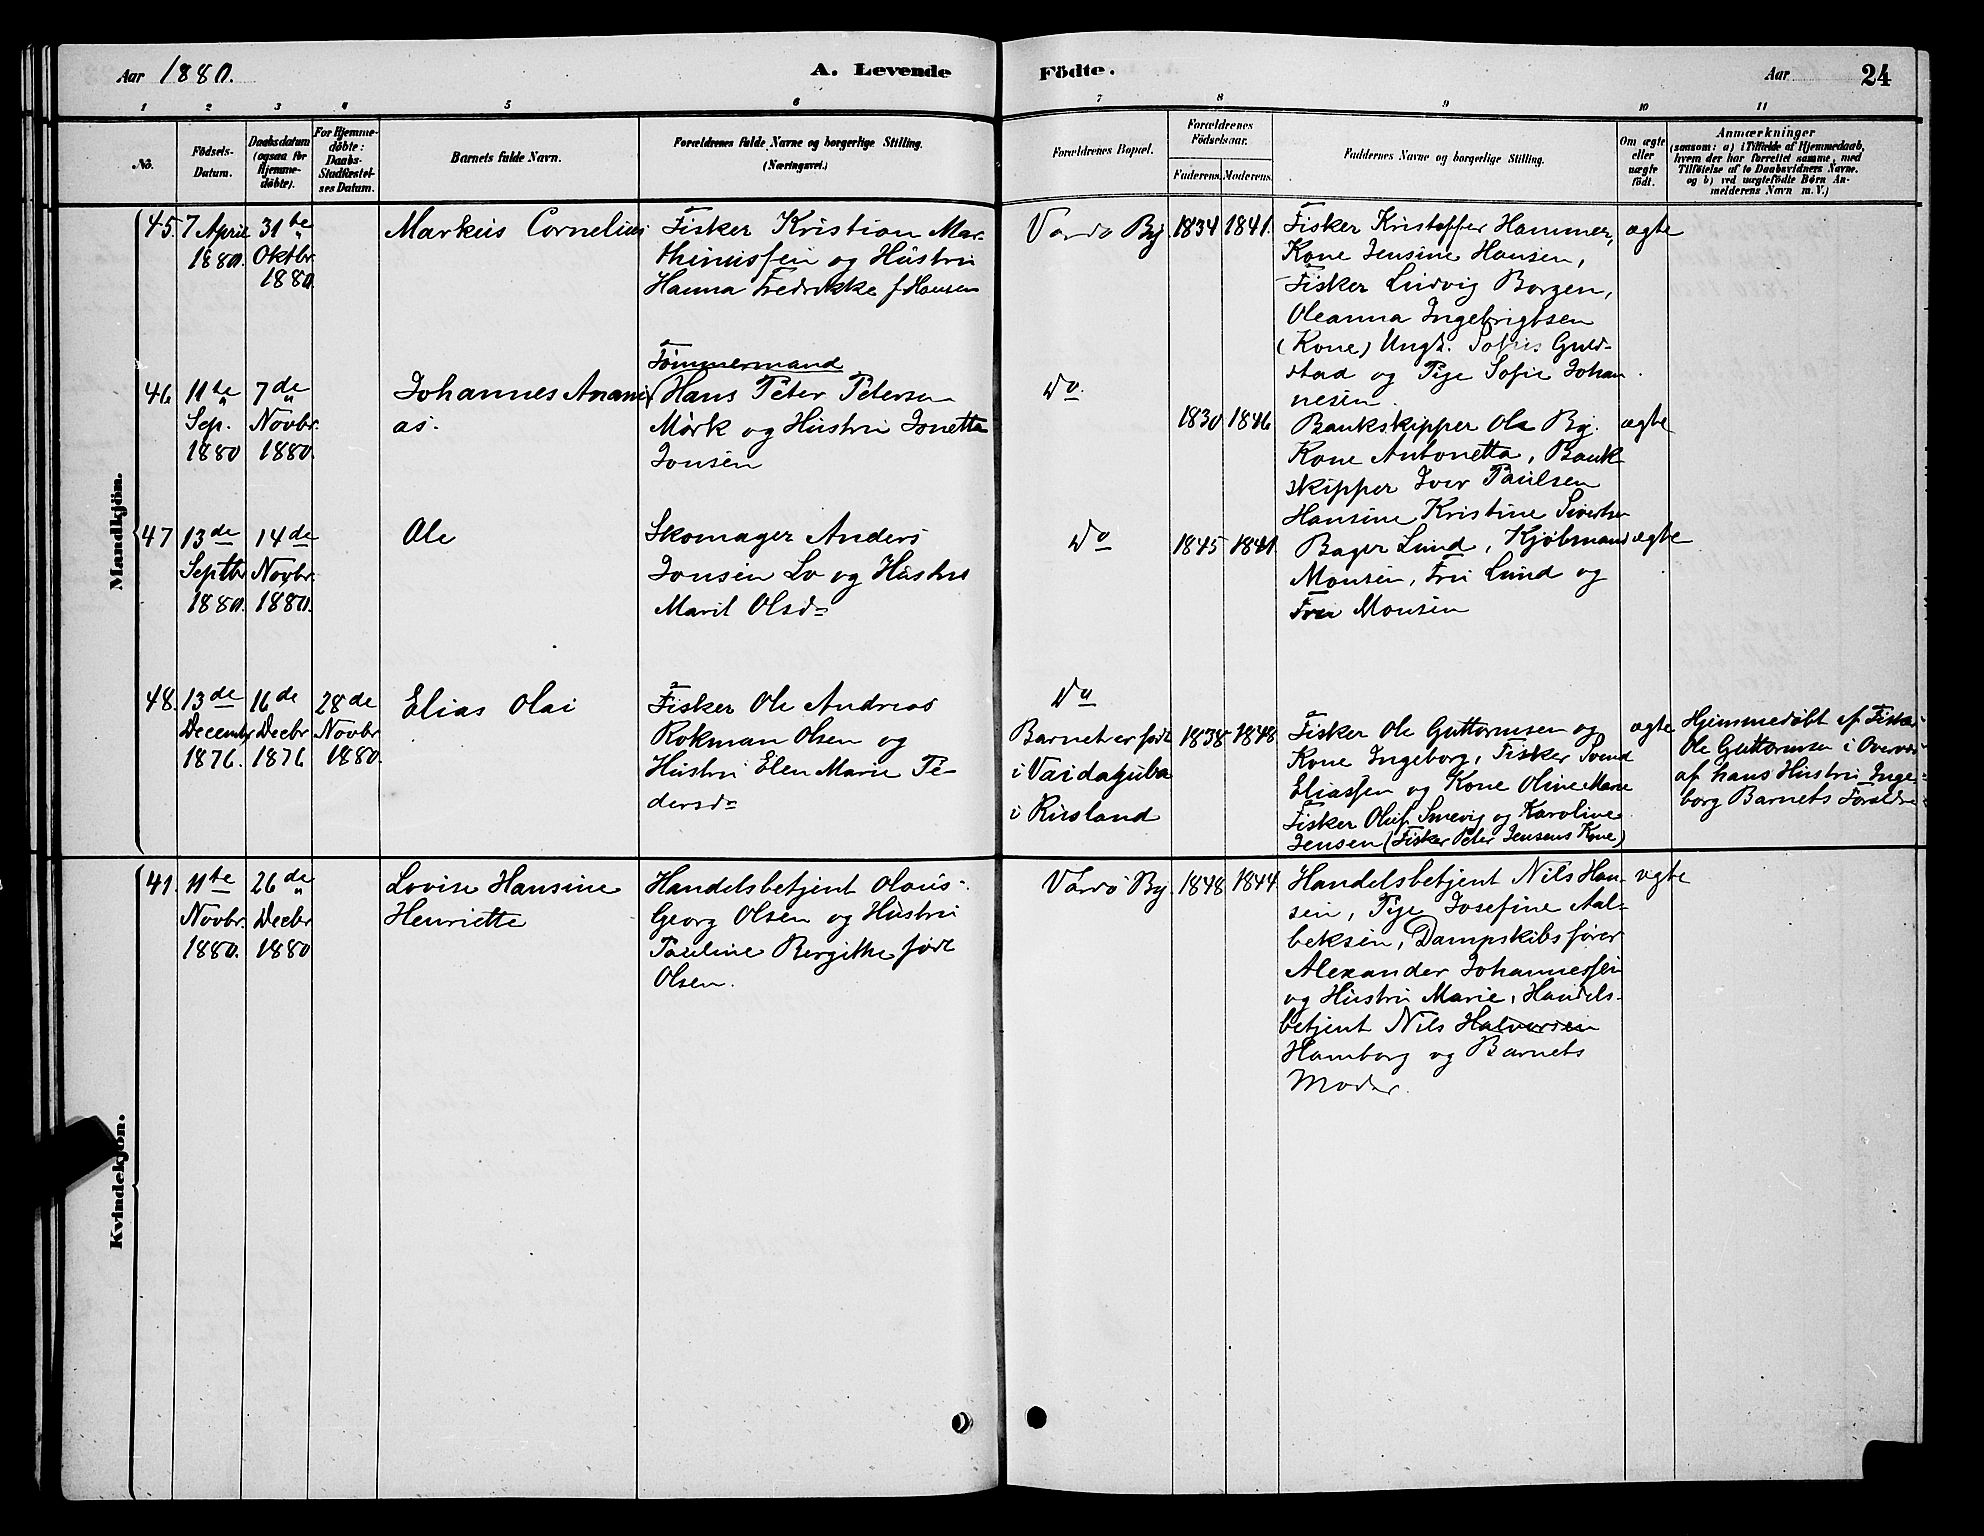 Aar 1880.
A. Levende
Födte.
Aar
24
1
2
3
4
5
6
7
8
9
10
11
No.
Födsels-
Datum.
Daabsdatum
(ogsaa for
Hjemme-
döbte).
For Hjemme-
döbte:
Daabs-
Stadfæstel-
ses Datum.
Barnets fulde Navn.
Forældrenes fulde Navne og borgerlige Stilling.
(Næringsvei.)
Forældrenes Bopæl.
Forældrenes
Födselsaar.
Faderens.
Moderens.
Faddernes Navne og borgerlige Stilling.
Om ægte
eller
uægte
födt.
Anmærkninger
(saasom: a) i Tilfælde af Hjemmedaab,
hvem der har forrettet samme, med
Tilföielse af to Daabsvidners Navne.
og b) ved uægtefödte Börn An-
melderens Navn m. V.)
Mandkjön.
45.
7 April
1880.
31te
Oktbr.
1880
Markus Cornelius
Fisker Kristian Mar-
thinussen og Hustru
Hanna Fredrikke f. Hansen
Vardö By.
1834
1841.
Fisker Kristoffer Hammer,
Kone Jensine Hansen,
Fisker Ludvig Borgen,
Oleanna Ingebrigtsen
(Kone) Ungk. Guld-
stad og Pige Sofie Johan
nesen.
ægte
46
11te
Sep.
1880
7de
Novbr.
1880.
Johannes Anani
as.
Tömmermand
Hans Peter Petersen
Mörk og Hustru Jonetta
Jonsen
Do
1830
1846
Bankskipper Ole By.
Kone Antonetta, Bank
skipper Iver Paulsen
Hansine Kristine Sivertsen
ægte
47
13de
Septbr
1880.
14de
Novbr.
1880.
Ole
Skomager Anders
Jonsen Lo og Hustru
Marit Olsd.
Do
1845
1841.
Bager Lund, Kjöbmand
Monsen, Fru Lund og
Fru Monsen
ægte
48.
13de
Decembr
1876.
16de
Decbr
1876
28de
Novbr
1880.
Elias Olai
Fisker Ole Andreas
Rokman Olsen og
Hustru Elen Marie Pe-
dersd.
Do
Barnet er födt
i Vaidaguba
i Rusland
1838
1848
Fisker Ole Guttormsen og
Kone Ingeborg, Fisker Svend
Eliassen og Kone Oline Marie
Fisker Oluf Snevig og Karoline
Jensen (Fisker Peter Jensens Kone)
ægte
Hjemmedöbt af Fisker
Ole Guttormsen i Overvær
af hans Hustru Inge-
borg Barnets Forældre
Kvindekjön.
41.
11te
Novbr.
1880.
26de
Decbr
1880
Lovise Hansine
Henriette
Handelsbetjent Olaus
Georg Olsen og Hustru
Pauline Bergithe født
Olsen.
Vardö By.
1848
1844
Handelsbetjent Nils Han-
sen, Pige Josefine Aal-
beksen, Dampskibsförer
Alexander Johannessen
og Hustru Marie, Handels-
betjent Nils Halvorsen
Hamborg og Barnets
Moder.
ægte